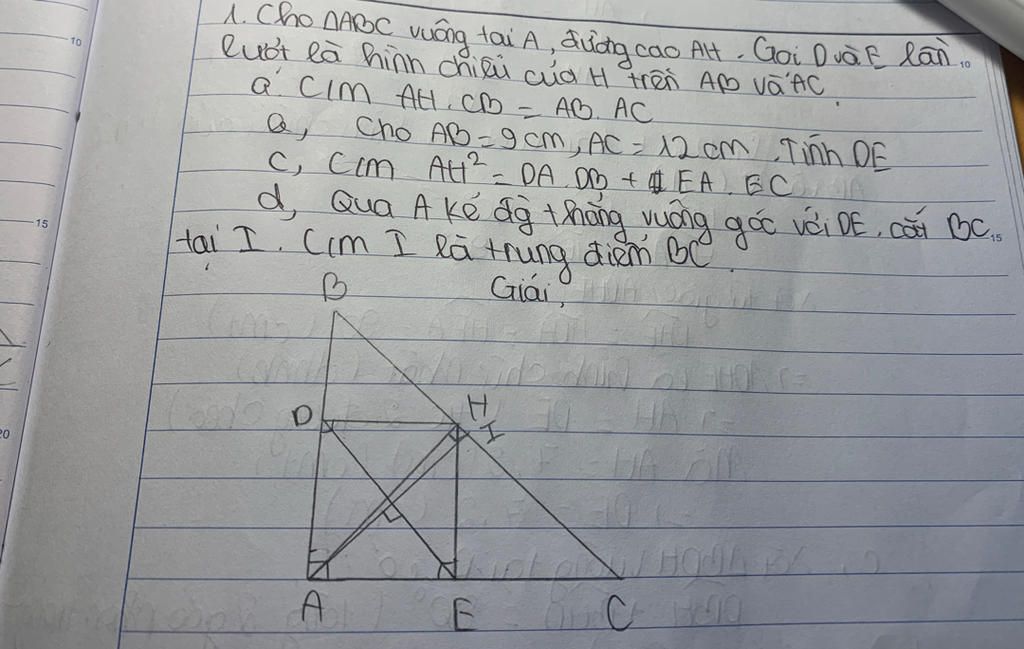 1. Cho ΔABC vuông tại A, đường cao AH. Gọi D và E lần
lượt là hình chiếu của H trên AB và AC.
a, C/m AH.CB = AB.AC
a, cho AB = 9cm, AC = 12cm. Tính DE
c, C/m AH² = DA.DB + EA.EC
d, Qua A kẻ đg thẳng vuông góc với DE, cắt BC
tại I. C/m I là trung điểm BC.
Giải,
B
D
H
I
A
E
C
10
15
20
10
15